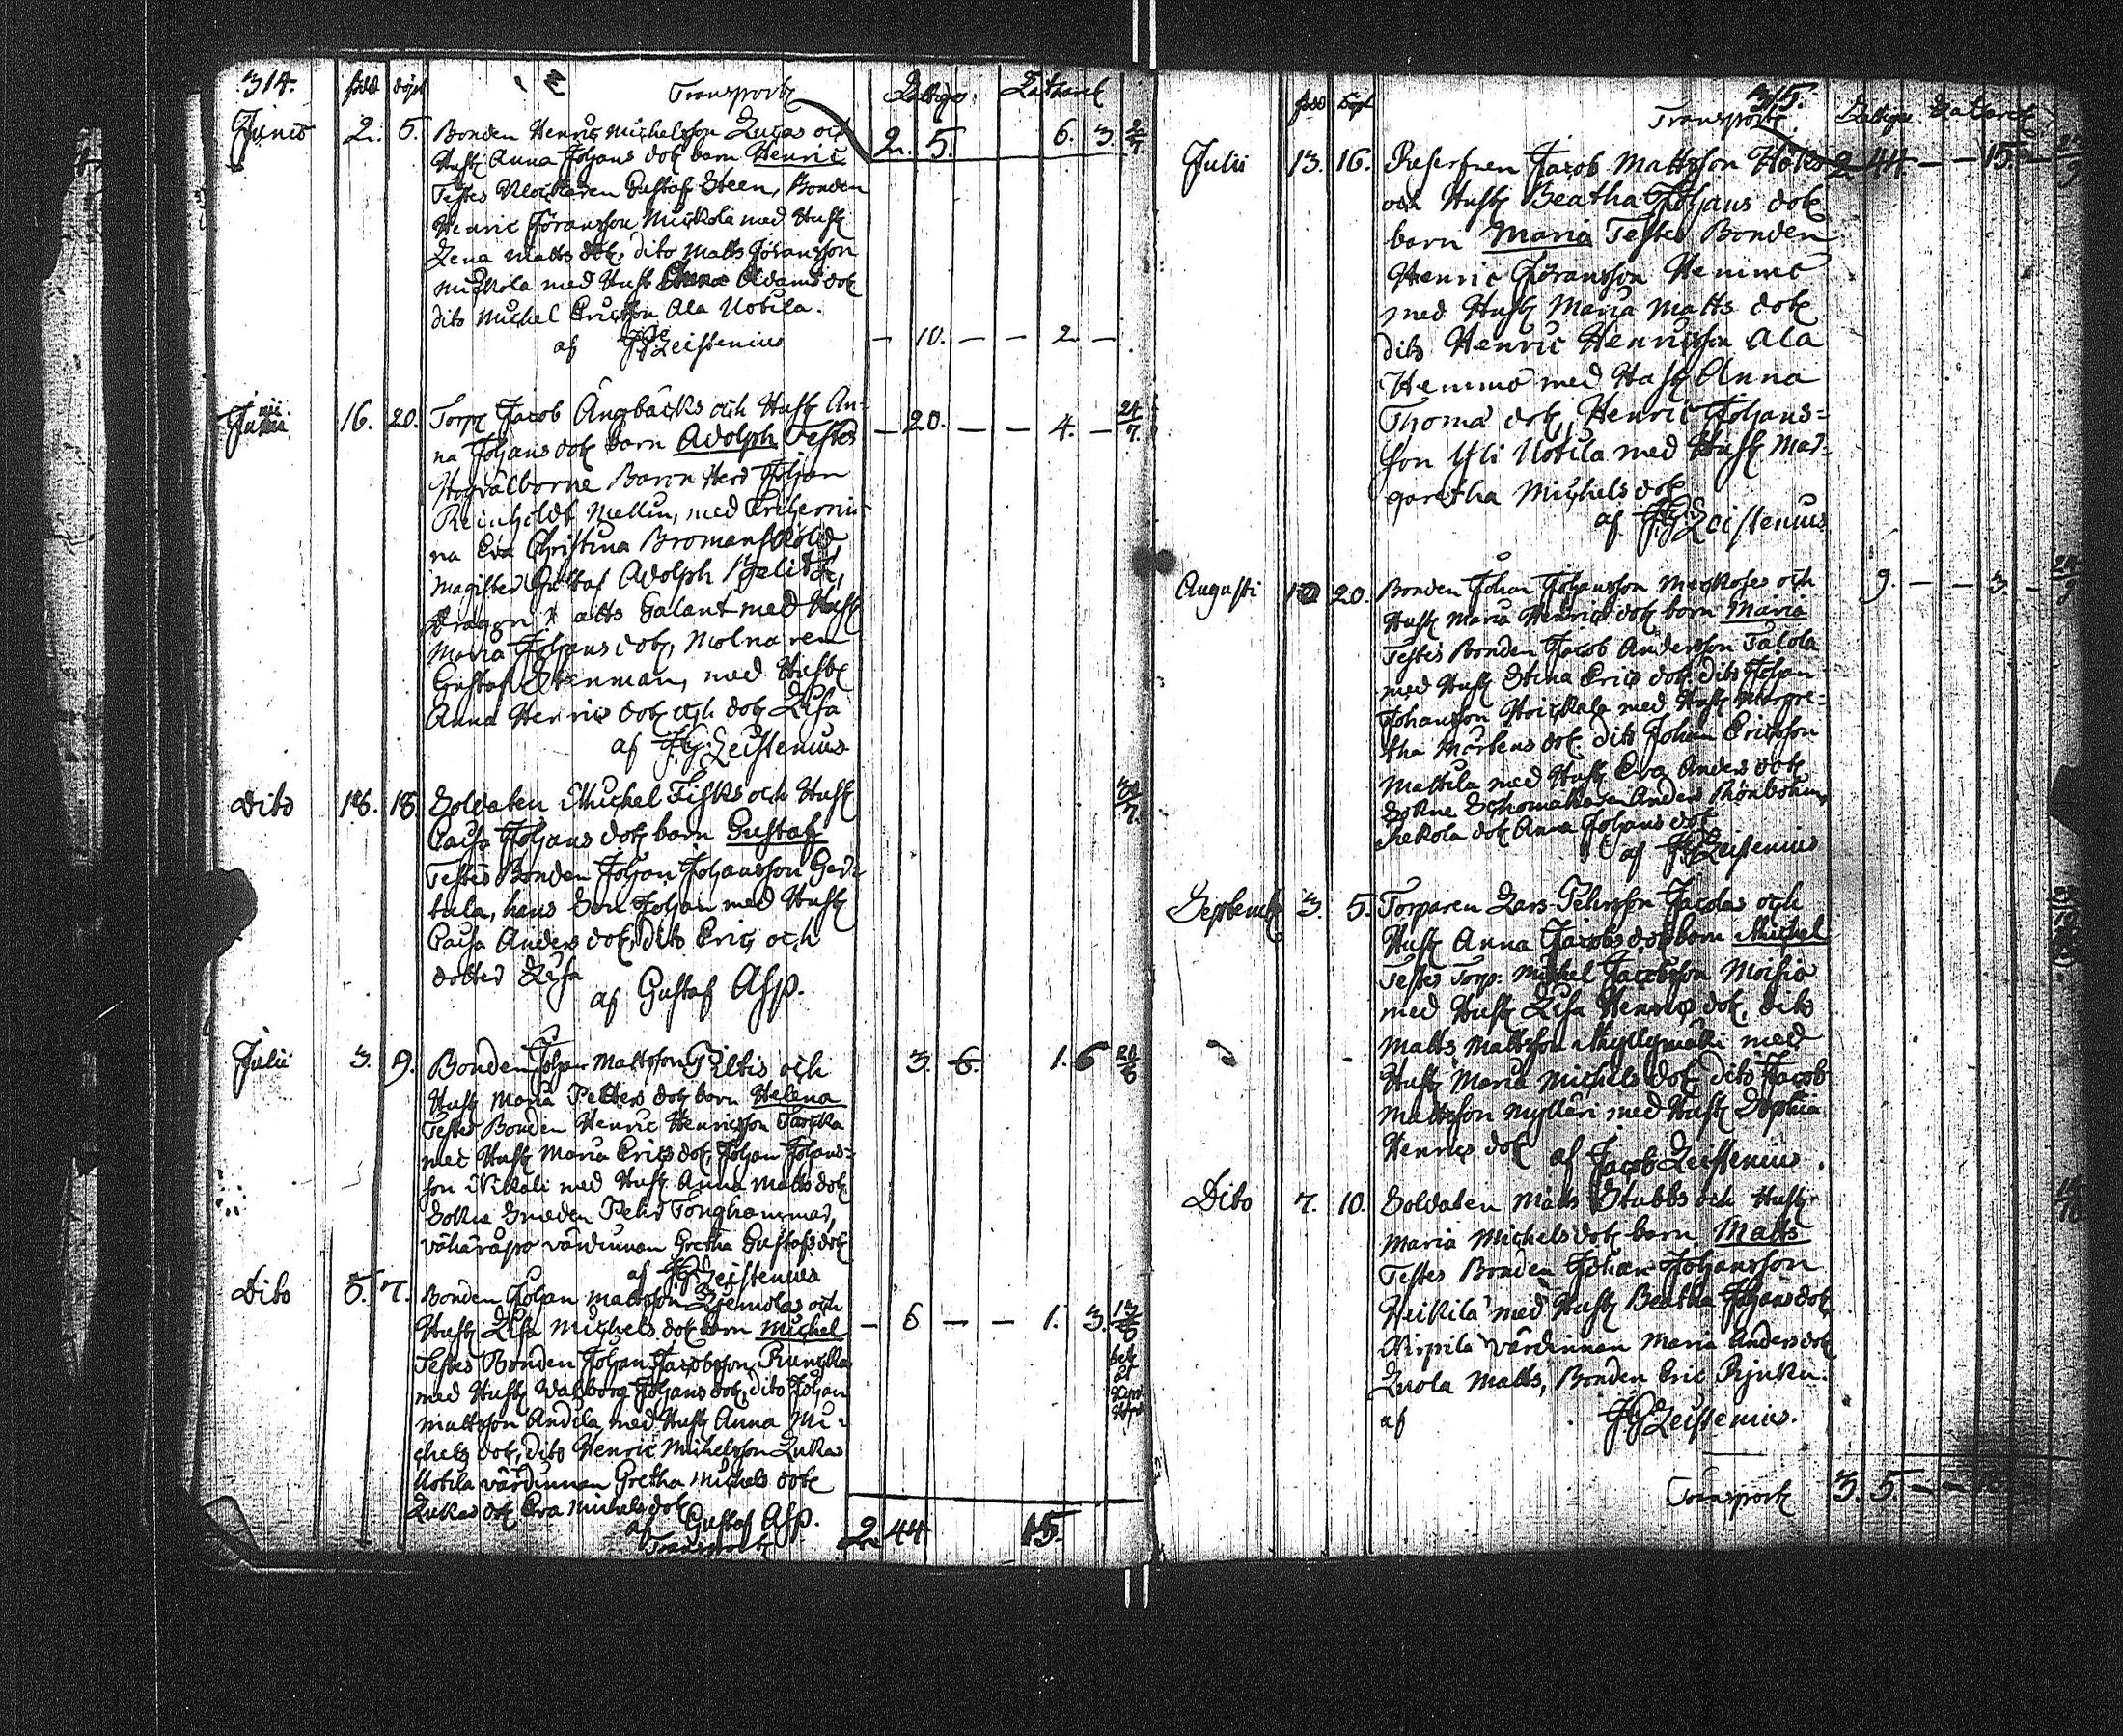 314. född döpt Transport Fattiga Lazaret
Junii 2. 5. Bonden Henric Michelsson Lucas och 2. 5. 6. 3
Hust. Anna Johans dot. barn Henric
Testes Klockaren Gustaf Steen, Bonden
Henric Göransson Muckola med Hust.
Lena Matts dot. dito Matts Göransson
Muckola med Hust. Adams dot.
dito Michel Ericsson Ala Uotila.
af JG Zeistenius – 10. – – 2 –
Junii 16. 20. Torp. Jacob Ångbäcks och Hust. An-
na Johans dot. barn Adolph Testes – 20. – – 4. – 24/7.
Högvälborne Baron Herr Johan
Reinholdt Mellin, med Friherrin-
na Eva Christina Bromanskiöld
Magister Gustaf Adolph
Dragon Matts Galant med Hust.
Maria Johans dot, Molnaren
Gustaf Stenman, med Hust.
Anna Henrics dot. och dot. Lisa
af J.G. Zeistenius
Dito 18. 18. Soldaten Michel Fisks och Hust.
Caisa Johans dot. barn Gustaf
Testes Bonden Johan Johansson Ger-
tula, hans Son Johan med Hust.
Caisa Anders dot, dito Eric, och
dotter Lisa
af Gustaf Asp.
Julii 3. 9. Bonden Johan Mattsson Filtis och 3. 6. 1. 6
Hust. Maria Petters dot. barn Helena
Testes Bonden Henric Henricsson
med Hust. Maria Erics dot, Johan Johans-
son Nikali med Hust. Anna Matts dot.
Sokne Smeden Pehr Tonghammar,
värdinnan Gretha Gustafs dot.
af J.G. Zeistenius
Dito 5. 7. Bonden Johan Mattsson och
Hust. Lisa Michels dot. barn Michel – 6 – – 1. 3.
Testes Bonden Johan Jacobsson
med Hust. Walborg Johans dot, dito Johan
Mattsson Andila, med Hust. Anna Mi-
chels dot, dito Henric Michelsson Lukas
Uotila värdinnan Gretha Michels dot.
Lukas dot. Eva Michels dot.
af Gustaf Asp.
Transport 2 44. 15.
315.
född döpt Transport Fattiga Lazaret
Julii 13. 16. Reserfven Jacob Mattsson 2 44 – – 15. –
och Hust. Beatha Johans dot.
barn Maria Testes Bonden
Henric Göransson Hemmo
med Hust. Maria Matts dot.
dito Henric Henricsson Ala
Hemmo med Hust. Anna
Thomæ dot, Henric Johans-
son Yli Uotila med Hust. Mar-
garetha Michels dot.
af J.G. Zeistenius
Augusti 20. Bonden Johan Johansson och 9. – – 3. –
Hust. Maria Henrics dot. barn Maria
Testes Bonden Jacob Andersson Talola
med Hust. Stina Erics dot. dito Johan
Johansson Hoickala med Hust. Margre-
tha Mårtens dot. dito Johan Ericsson
Mattila med Hust. Eva Anders dot.
Sokne Skomakaren Anders Thönbohm,
dot. Anna Johans dot.
af J.G. Zeistenius
Septemb. 3. 5. Torparen Lars Pehrsson och
Hust. Anna Jacobs dot. barn Michel
Testes Torp. Michel Jacobsson Moisio
med Hust. Lisa Henrics dot, dito
Matts Mattsson Myllymäki med
Hust. Maria Michels dot, dito Jacob
Mattsson Mylläri med Hust. Sophia
Henrics dot. af Jacob Zeistenius.
Dito 7. 10. Soldaten Matts Stubbs och Hust.
Maria Michels dot. barn Matts
Testes Bonden Johan Johansson
Heikilä med Hust. Beatha Johans dot.
Kirpilä värdinnan Maria Anders dot.
Luola Matts, Bonden Eric
af J.G. Zeistenius.
Transport 3. 5. – –